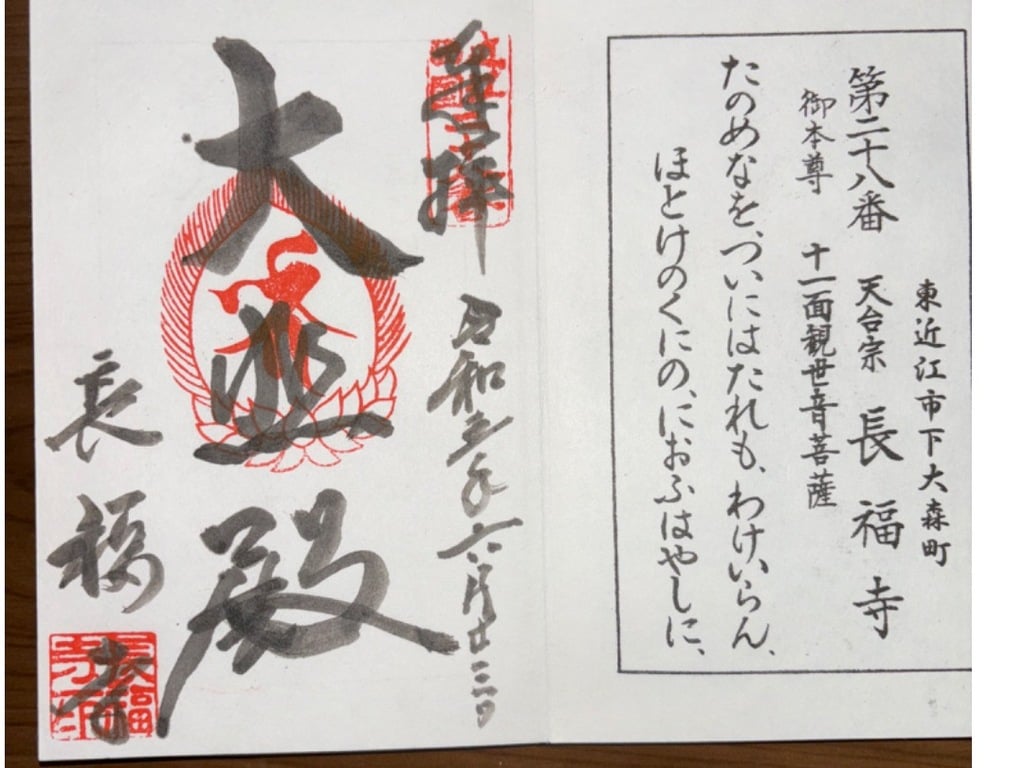 東近江市下大森町
第二十八番 天台宗 長福寺
御本尊 十一面観世音菩薩
たのめなを、ついにはたれも、わけいらん、
ほとけのくにの、におふはやしに、
奉拝
令和三年六月廿三日
大悲殿
長福寺